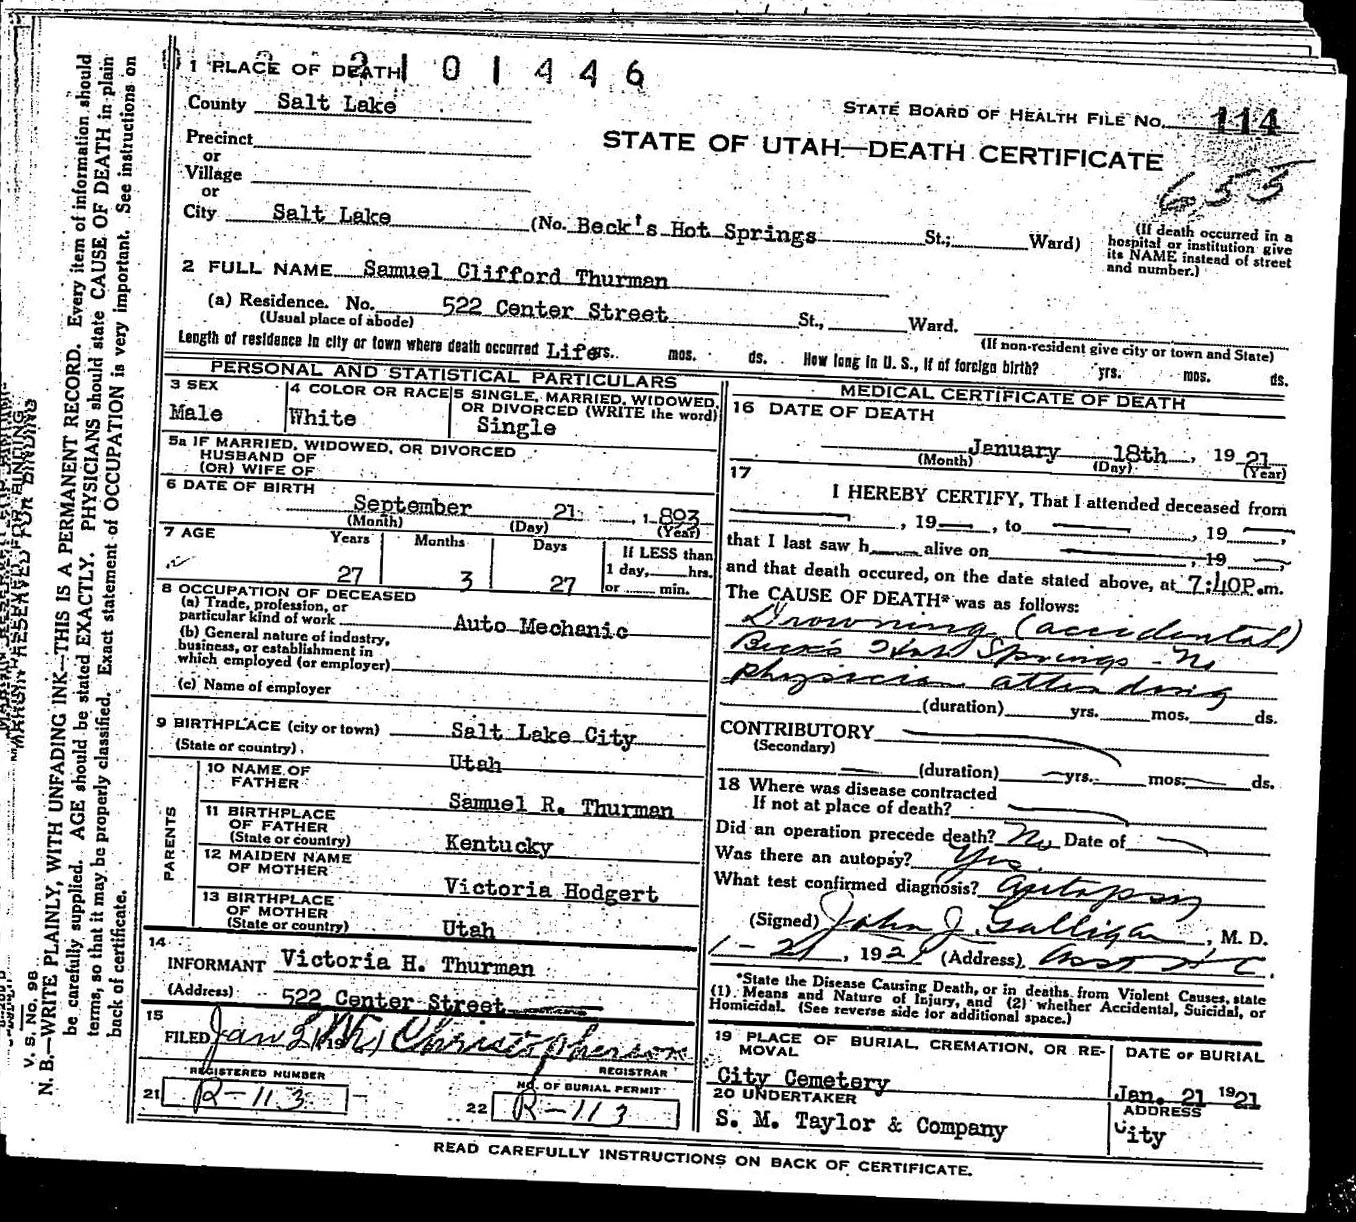 1 PLACE OF DEATH 2101446
County Salt Lake
STATE BOARD OF HEALTH FILE No. 114
Precinct
or
STATE OF UTAH—DEATH CERTIFICATE
Village
or
655
City Salt Lake (No. Beck's Hot Springs St.; Ward)
(If death occurred in a
hospital or institution give
its NAME instead of street
and number.)
2 FULL NAME Samuel Clifford Thurman
(a) Residence. No. 522 Center Street St., Ward.
(Usual place of abode)
(If non-resident give city or town and State)
Length of residence in city or town where death occurred Life yrs. mos. ds. How long in U. S., if of foreign birth? yrs. mos. ds.
PERSONAL AND STATISTICAL PARTICULARS
3 SEX
Male
4 COLOR OR RACE
White
5 SINGLE, MARRIED, WIDOWED,
OR DIVORCED (WRITE the word)
Single
5a IF MARRIED, WIDOWED, OR DIVORCED
HUSBAND OF
(OR) WIFE OF
6 DATE OF BIRTH
September 21 , 1893
(Month) (Day) (Year)
7 AGE
Years Months Days
27 3 27
If LESS than
1 day, hrs.
or min.
8 OCCUPATION OF DECEASED
(a) Trade, profession, or
particular kind of work Auto Mechanic
(b) General nature of industry,
business, or establishment in
which employed (or employer)
(c) Name of employer
9 BIRTHPLACE (city or town) Salt Lake City
(State or country) Utah
PARENTS
10 NAME OF
FATHER Samuel R. Thurman
11 BIRTHPLACE
OF FATHER
(State or country) Kentucky
12 MAIDEN NAME
OF MOTHER Victoria Hodgert
13 BIRTHPLACE
OF MOTHER
(State or country) Utah
14
INFORMANT Victoria H. Thurman
(Address) 522 Center Street
15
FILED Jan Christopherson
REGISTRAR
REGISTERED NUMBER
21 R-113
NO. OF BURIAL PERMIT
22 R-113
MEDICAL CERTIFICATE OF DEATH
16 DATE OF DEATH
January 18th , 1921
(Month) (Day) (Year)
17
I HEREBY CERTIFY, That I attended deceased from
, 19 , to , 19 ,
that I last saw h alive on , 19 ,
and that death occured, on the date stated above, at 7:40P.m.
The CAUSE OF DEATH* was as follows:
Drowning (accidental)
Beck's Hot Springs - No
physician attending
(duration) yrs. mos. ds.
CONTRIBUTORY
(Secondary)
(duration) yrs. mos. ds.
18 Where was disease contracted
If not at place of death?
Did an operation precede death? No Date of
Was there an autopsy? Yes
What test confirmed diagnosis? Autopsy
(Signed) John J. Galligan , M. D.
1-21, 1921 (Address)
*State the Disease Causing Death, or in deaths from Violent Causes, state
(1) Means and Nature of Injury, and (2) whether Accidental, Suicidal, or
Homicidal. (See reverse side for additional space.)
19 PLACE OF BURIAL, CREMATION, OR RE-
MOVAL
City Cemetery
DATE OF BURIAL
Jan. 21 1921
20 UNDERTAKER
S. M. Taylor & Company
ADDRESS
City
READ CAREFULLY INSTRUCTIONS ON BACK OF CERTIFICATE.
V. S. NO. 98
MARGIN RESERVED FOR BINDING
N. B.—WRITE PLAINLY, WITH UNFADING INK—THIS IS A PERMANENT RECORD. Every item of information should
be carefully supplied. AGE should be stated EXACTLY. PHYSICIANS should state CAUSE OF DEATH in plain
terms, so that it may be properly classified. Exact statement of OCCUPATION is very important. See instructions on
back of certificate.